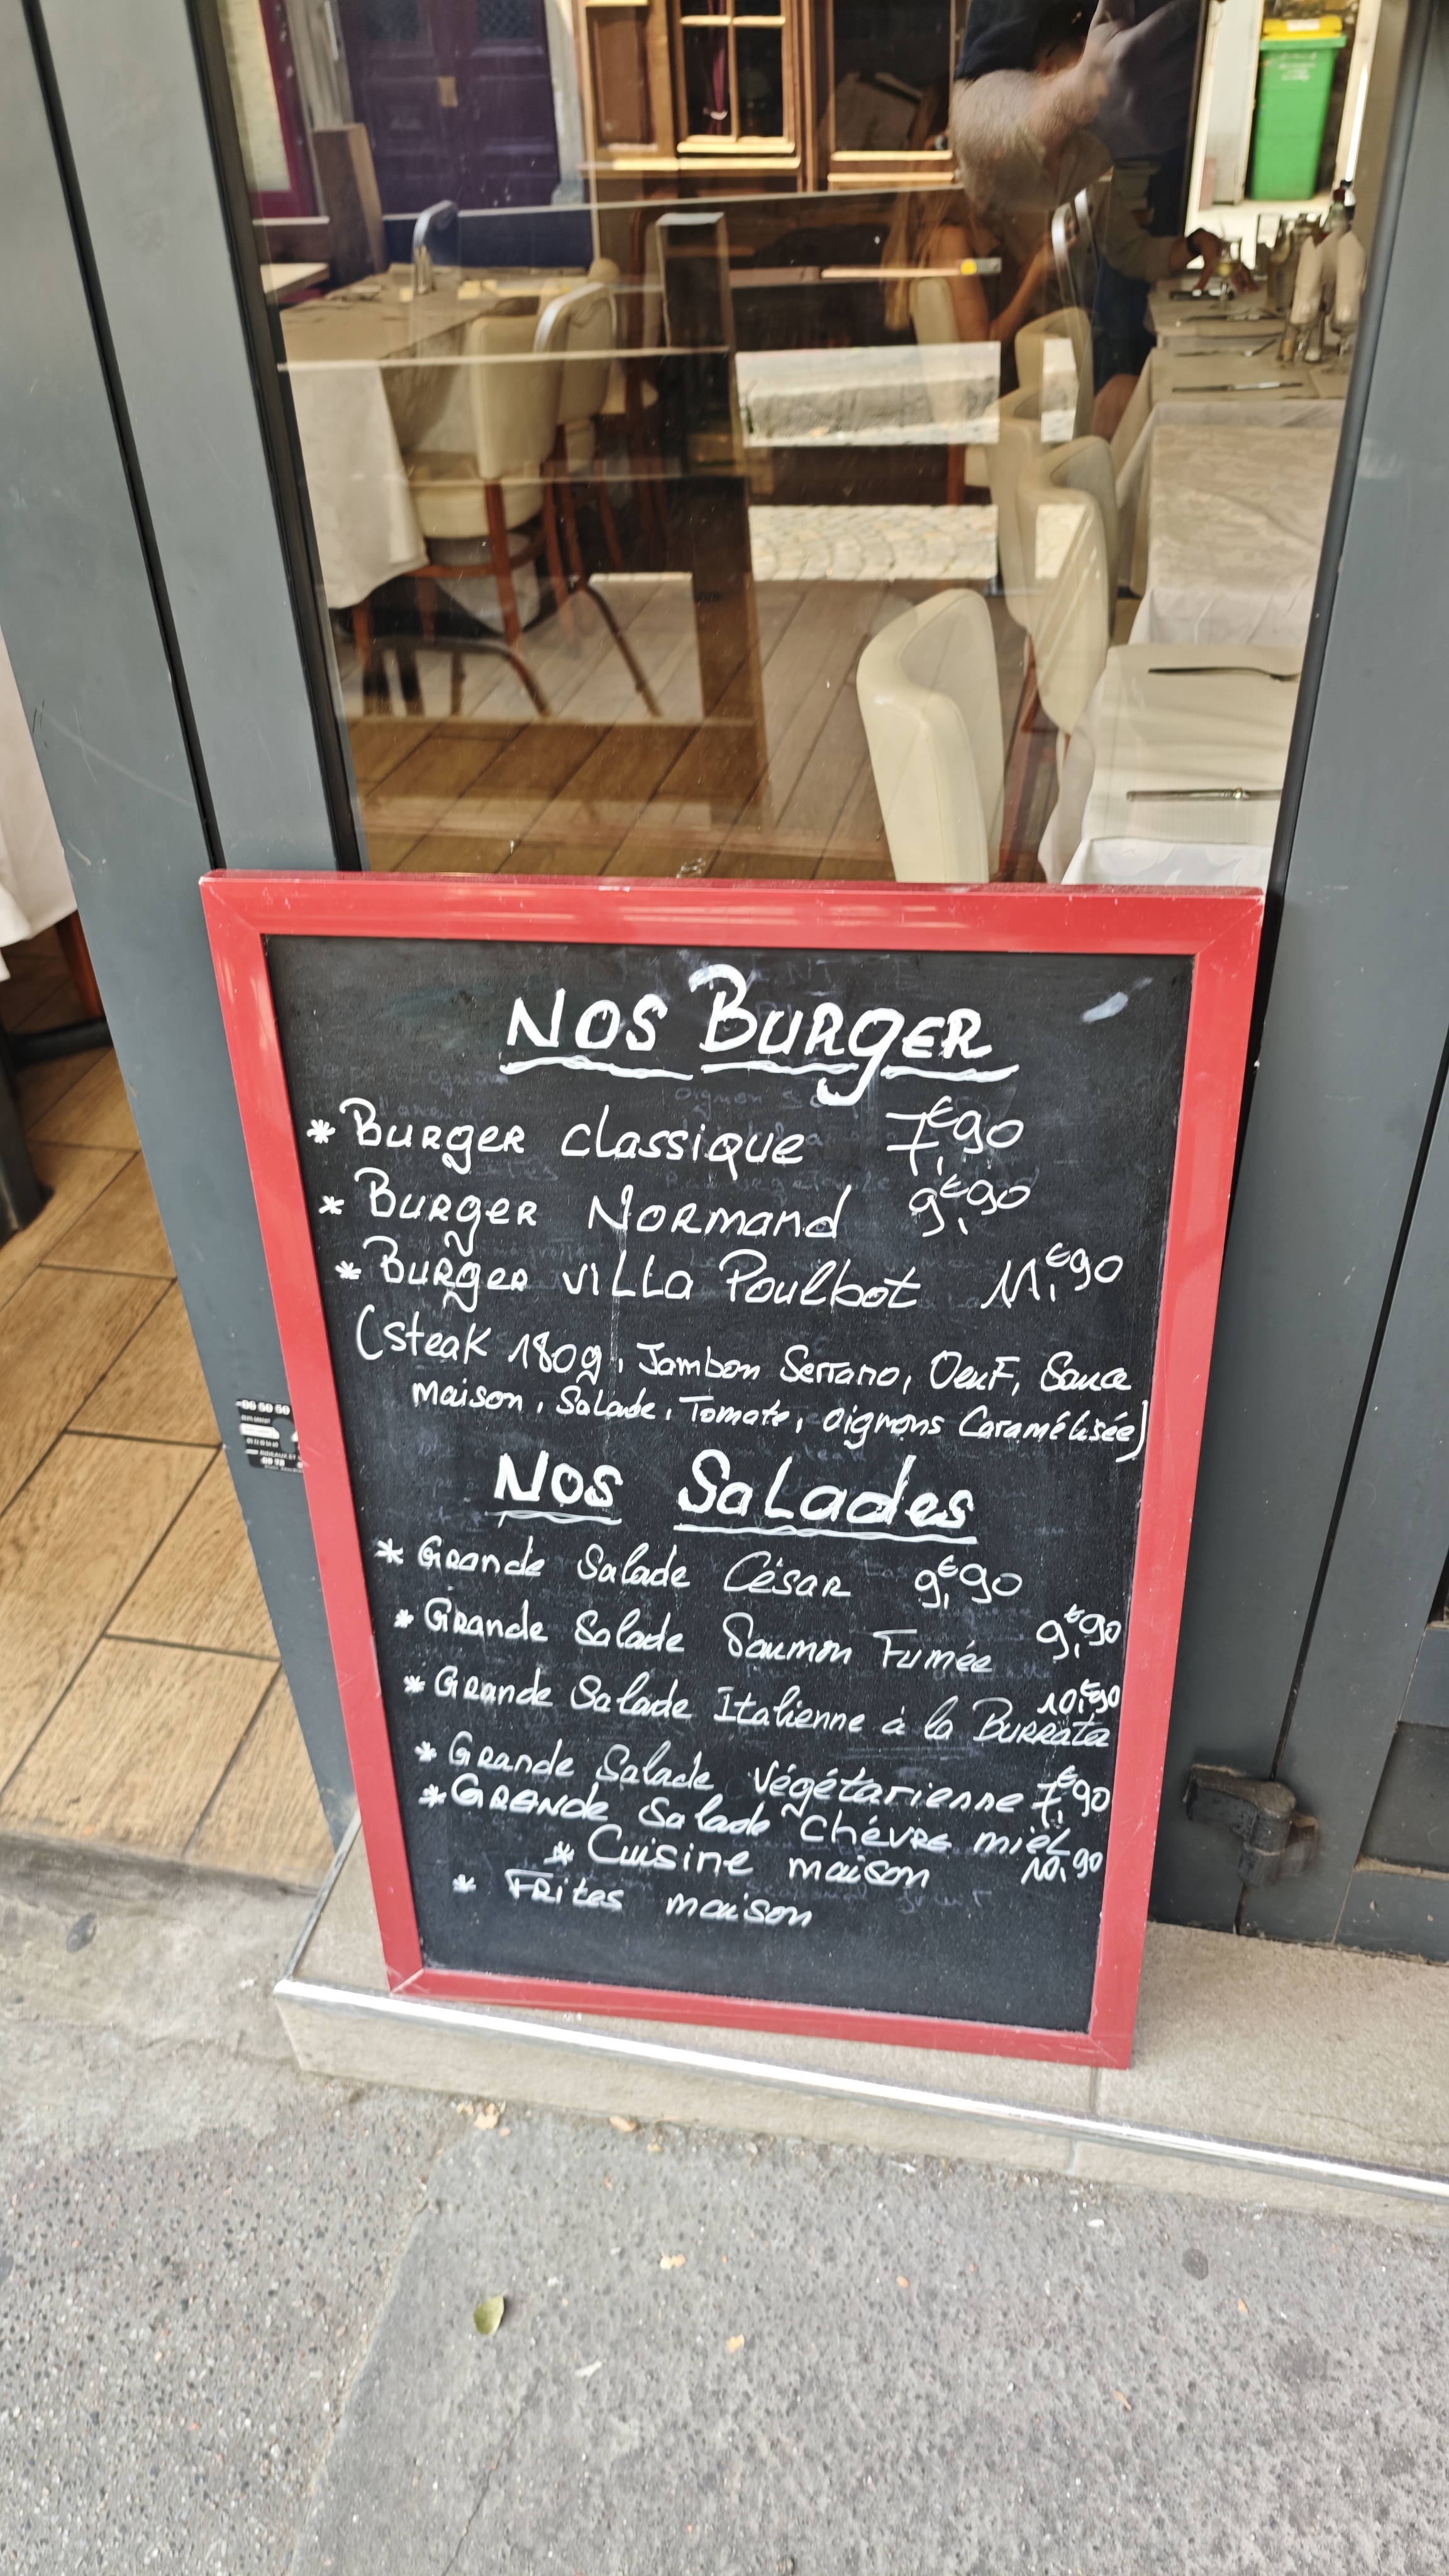 NOS BURGER
* BURGER classique 7,€90
* BURGER NORMAND 9,€90
* BURGER VILLA Poulbot 11,€90
(steak 180g, Jambon Serrano, OeuF, Sauce
maison, Salade, Tomate, oignons Caramélisée)
NOS SALades
* GRande Salade CésAR 9,€90
* GRande Salade Saumon Fumée 9,€90
* GRande Salade Italienne à la BURRata 10,€90
* GRande Salade Végétarienne 7,€90
* GRANDe Salade ChévRe mieL
* Cuisine maison 10,90
* FRites maison